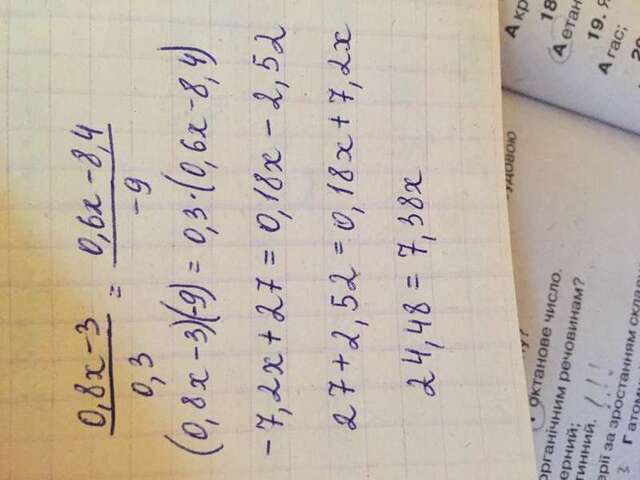 0,8x-3 / 0,3 = 0,6x-8,4 / -9
(0,8x-3)(-9) = 0,3·(0,6x-8,4)
-7,2x+27 = 0,18x-2,52
27+2,52 = 0,18x+7,2x
24,48 = 7,38x
у?
удовою
октанове число.
органічним речовинам?
ерний;
тинний.
!!!
ерії за зростанням склад
Г
А
18
А етан
19.
А гас;